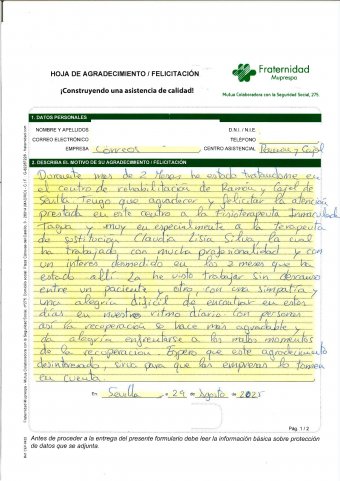 HOJA DE AGRADECIMIENTO / FELICITACIÓN
¡Construyendo una asistencia de calidad!
Fraternidad
Muprespa
Mutua Colaboradora con la Seguridad Social, 275
1. DATOS PERSONALES
NOMBRE Y APELLIDOS
D.N.I. / N.I.E.
CORREO ELECTRÓNICO
TELÉFONO
EMPRESA Correos
CENTRO ASISTENCIAL Ramon y Cajal
2. DESCRIBA EL MOTIVO DE SU AGRADECIMIENTO / FELICITACIÓN
Durante mas de 2 Meses he estado tratandome en
el centro de rehabilitación de Ramon y Cajal de
Sevilla Tengo que agradecer y felicitar la atención
prestada en este centro a la Fisioterapeuta Inmaculada
y muy en especialmente a la terapeuta
de sustitución Claudia Silva la cual
ha trabajado con mucha profesionalidad y con
un interes desmedido en los 2 meses que he
estado alli La he visto trabajar sin descanso
entre un paciente y otro con una simpatia y
una alegria dificil de encontrar en estos
dias en nuestros ritmo diario con personas
asi la recuperación se hace mas agradable y
da alegria enfrentarse a los malos momentos
de la recuperacion. Espero que este agradecimiento
desinteresado, sirva para que las empresas lo tomen
en cuenta.
en Sevilla a 29 de Agosto de 2025
Pág. 1 / 2
Antes de proceder a la entrega del presente formulario debe leer la información básica sobre protección
de datos que se adjunta.